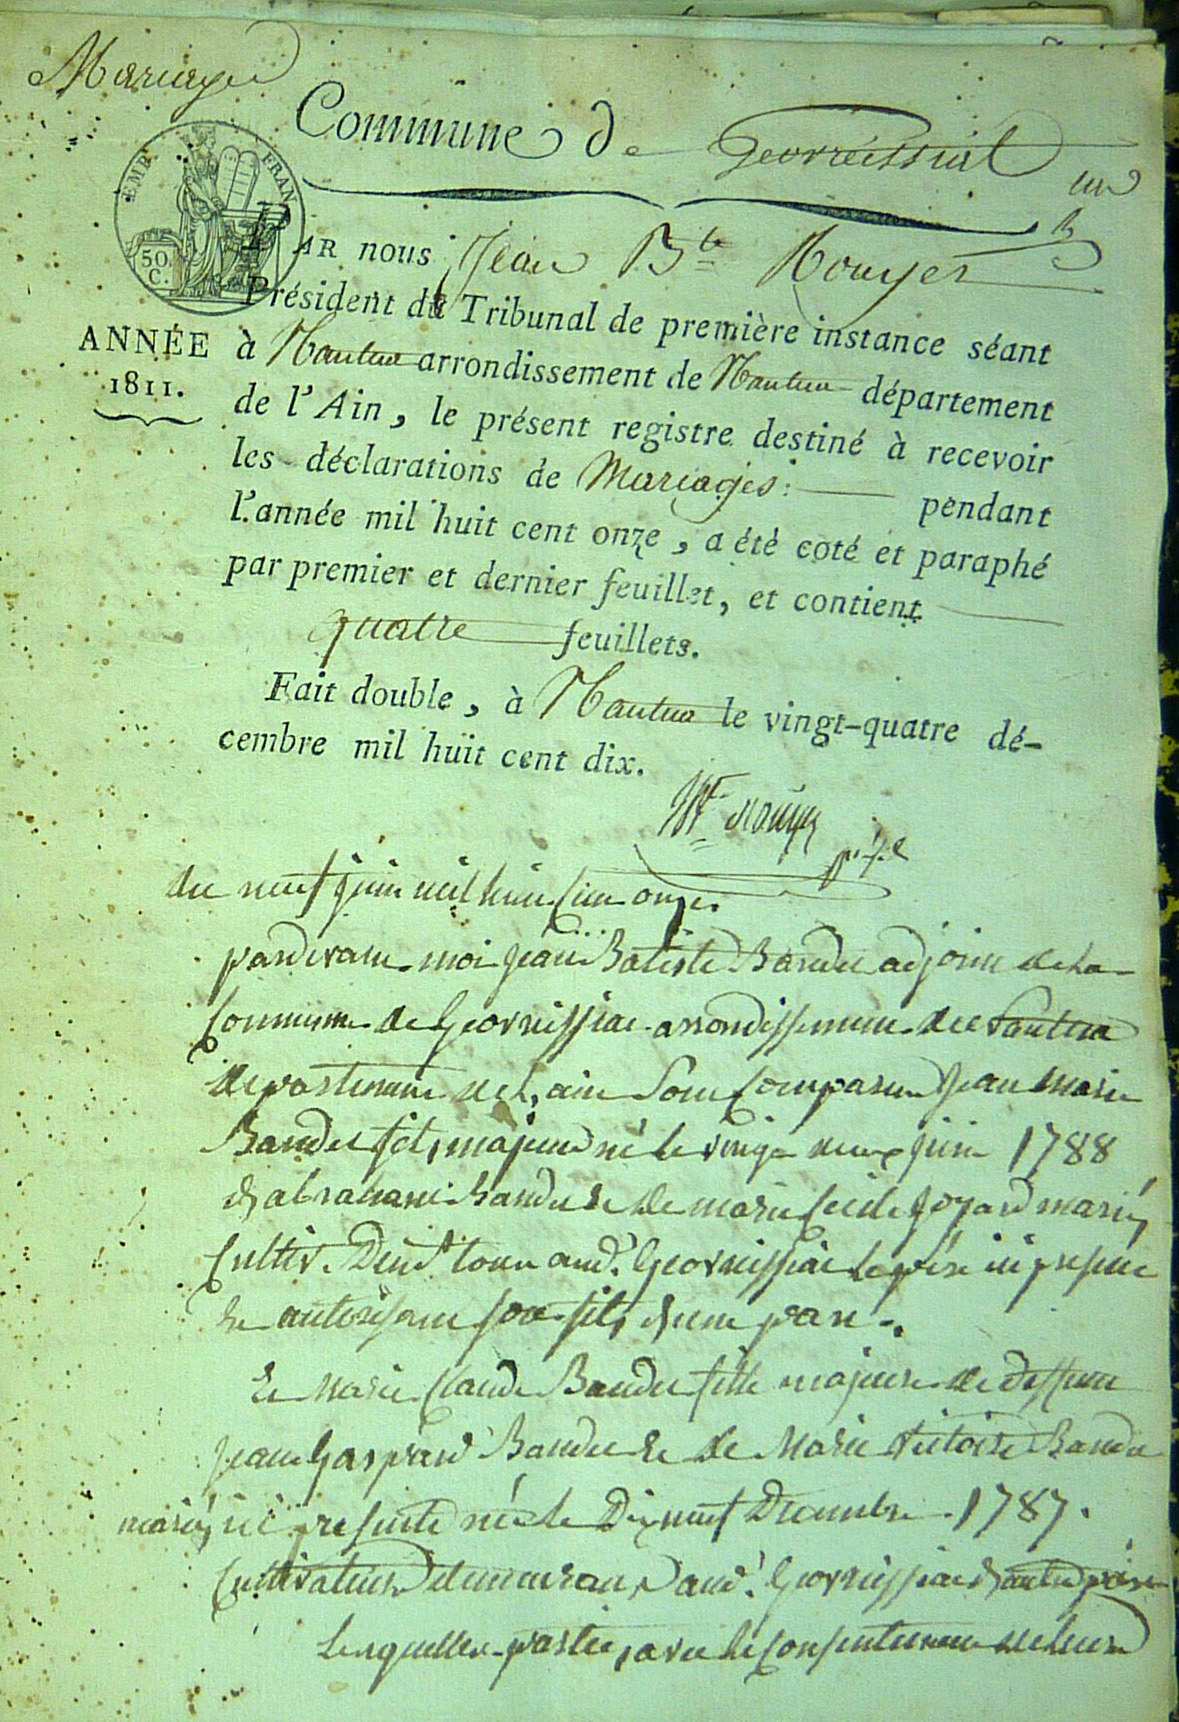 Mariages
Commune de Georreissiat
un
EMP. FRAN
50. C.
PAR nous Jean Bte Rouyer
Président du Tribunal de première instance séant
ANNÉE 1811.
à Nantua arrondissement de Nantua département
de l'Ain, le présent registre destiné à recevoir
les déclarations de Mariages pendant
l'année mil huit cent onze, a été coté et paraphé
par premier et dernier feuillet, et contient
quatre feuillets.
Fait double, à Nantua le vingt-quatre dé-
cembre mil huit cent dix.
du neuf juin mil huit cent onze.
pardevant moi jean Batiste Bandet adjoint de la
Commune de Georreissiat arrondissement de Nantua
departement de l'ain sont comparu jean marie
Bandet fils majeur né le vingt deux juin 1788
d'abraham Bandet et de marie Cecile joyard mariés
Cultiv. audt Georreissiat le père ici present
et autorisant son fils d'une part.
Et Marie Claude Bandet fille majeure de deffunt
jean Gaspard Bandet et de Marie victoire Bandet
mariés ici presente née le Dix neuf Decembre 1787.
Cultivateurs demeurant audt Georreissiat d'autre part
lesquelles parties avec le consentement de leurs